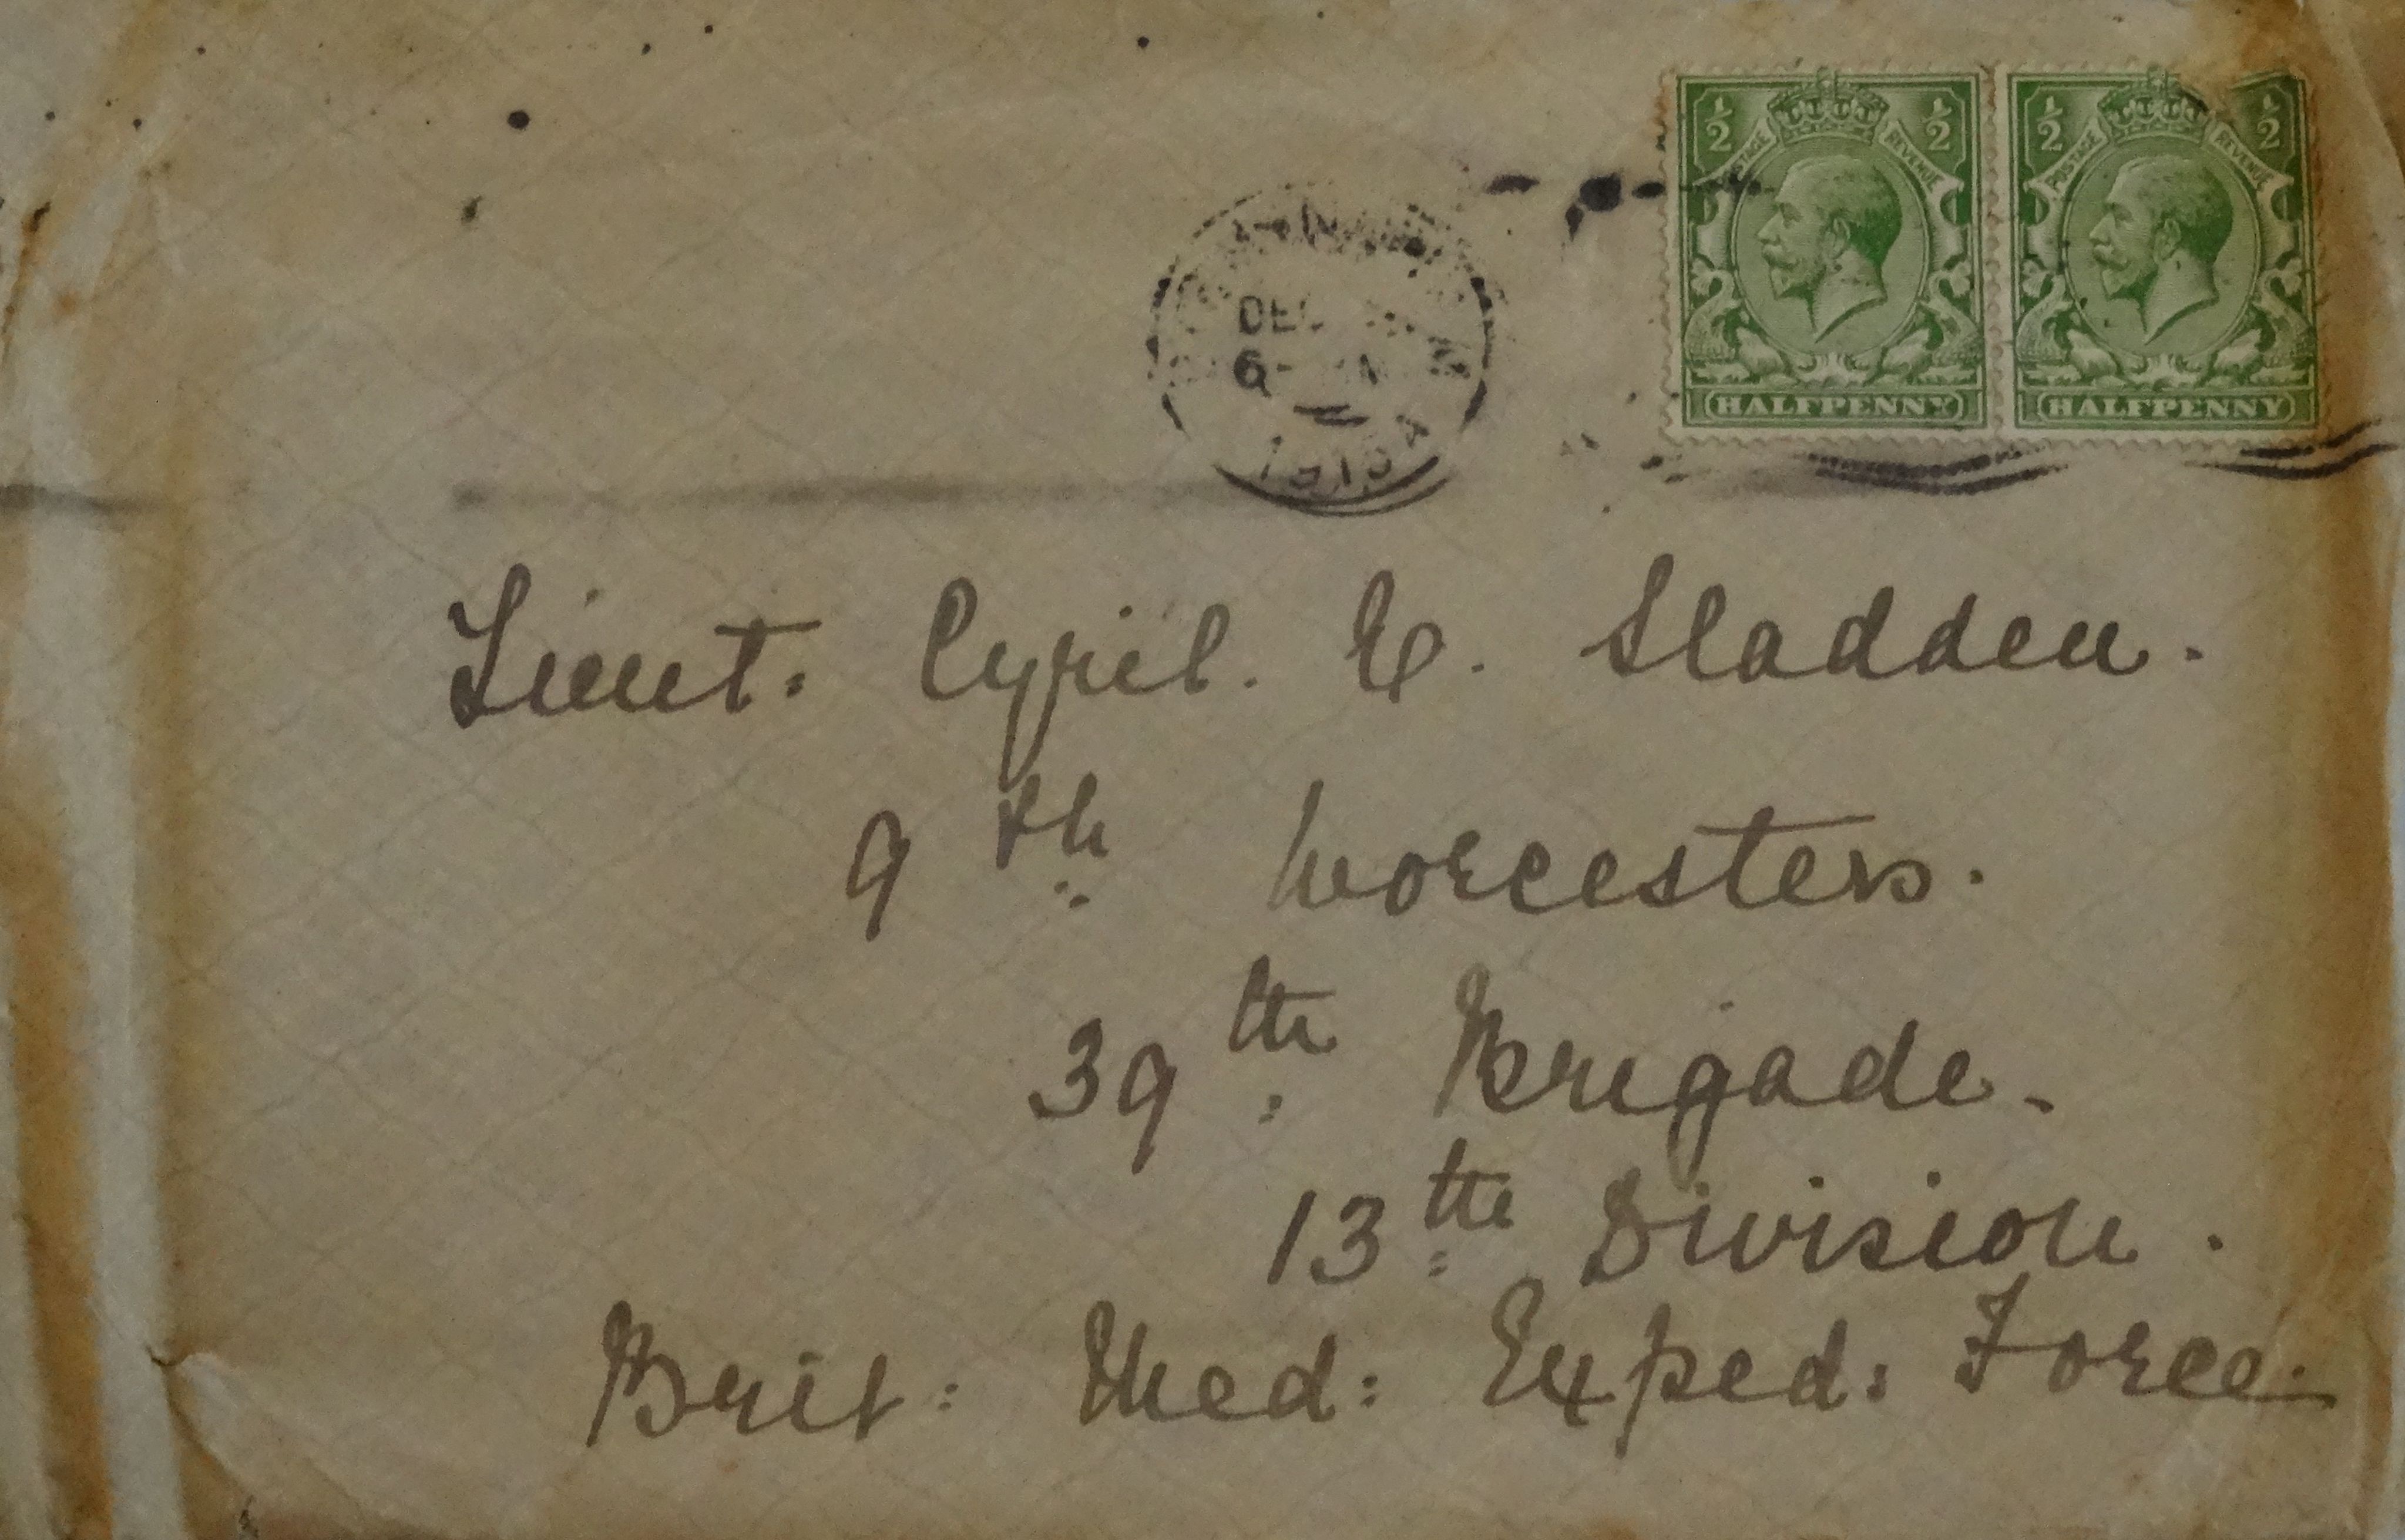 ½ ½ ½ ½
POSTAGE REVENUE POSTAGE REVENUE
HALFPENNY HALFPENNY
DEC
6-
1915
Lieut. Cyril. E. Sladden.
9th Worcesters.
39th Brigade.
13th Division.
Brit: Med: Exped: Force.